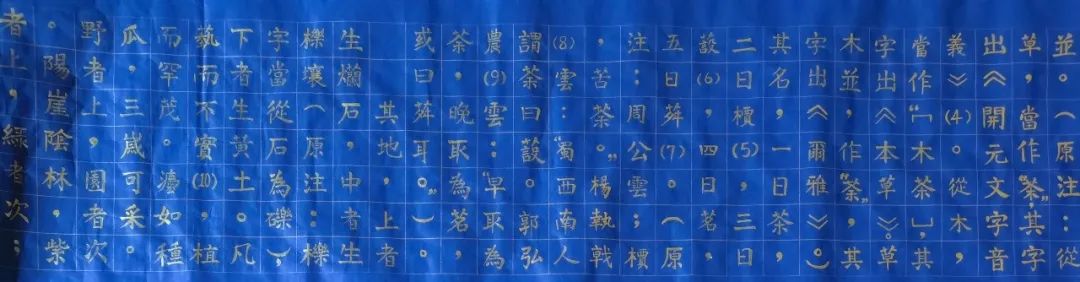 並。(原注:從
草,當作“茶”;其字
出《開元文字音
義》(4)。從木,
當作“木茶”,其
字出《本草》草
木並,作“荼”,其
字出《爾雅》。)
其名,一日茶,
二日檟(5),三日
蔎(6),四日,茗
五日荈(7)。(原
注:周公雲;檟
,苦荼。”楊執戟
(8)雲:“蜀西南人
謂荼曰蔎。郭弘
農(9)雲:“早取為
荼,晚取為茗
或曰荈耳。”)
其地,上者
生爛石,中者生
櫟壤(原注:櫟
字當從石為礫),
下者生黃土。凡
藝而不實(10),植
而罕茂。灋如種
瓜,三嵗可采。
野者上,園者次
。陽崖陰林,紫
者上,緑者次;